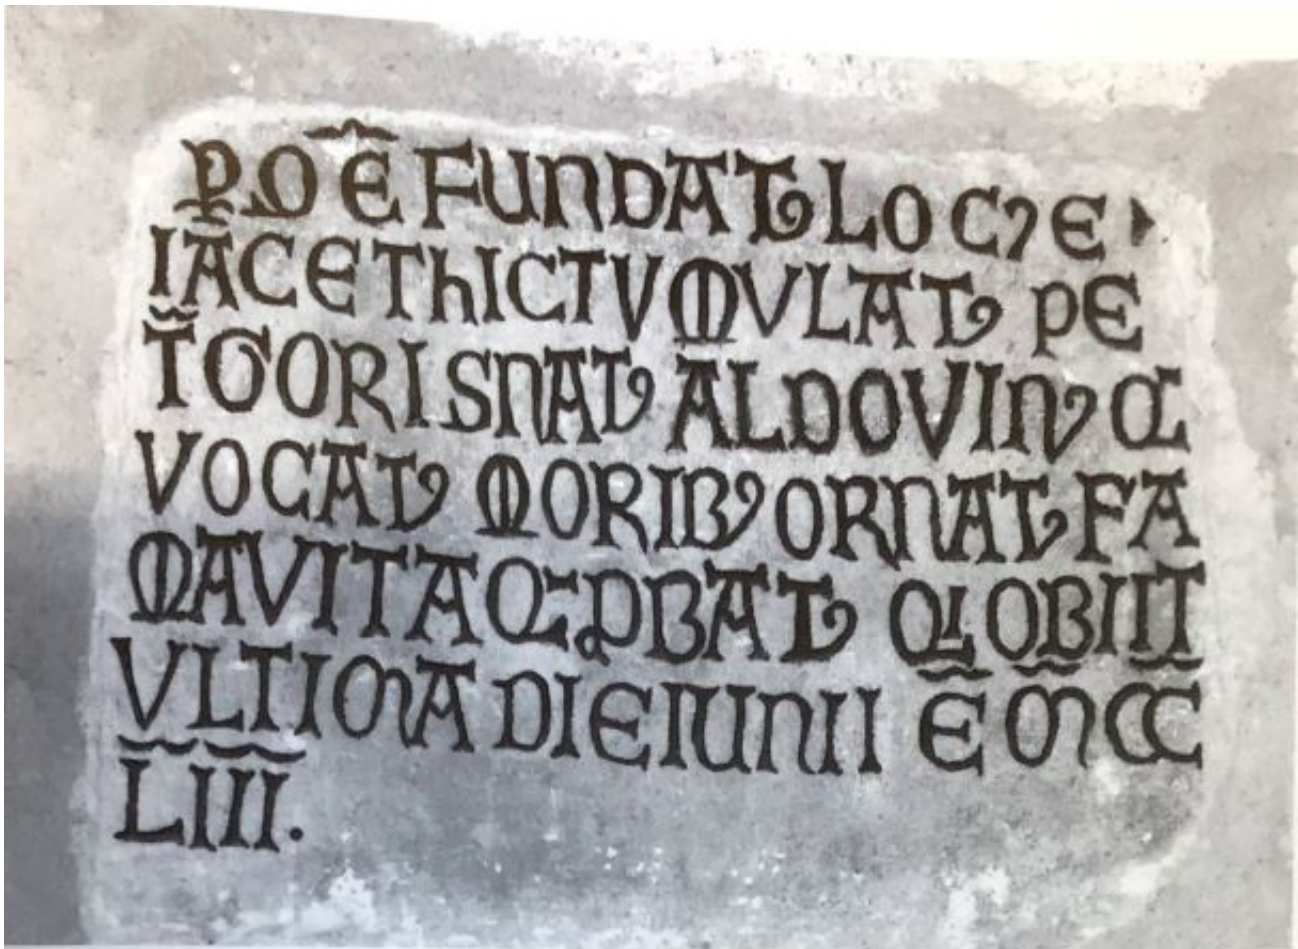 P̱Q Ē FUNDATꝰ LOCꝰ E
IACET hIC TVMVLATꝰ PE
T̄GORIS NATꝰ ALDOVINꝰ Q
VOCATꝰ MORIBꝰ ORNATꝰ FA
MA VITA Q PBATꝰ QI OBIIT
ULTIMA DIE IUNII Ē M̄C̄C̄
L̄III.